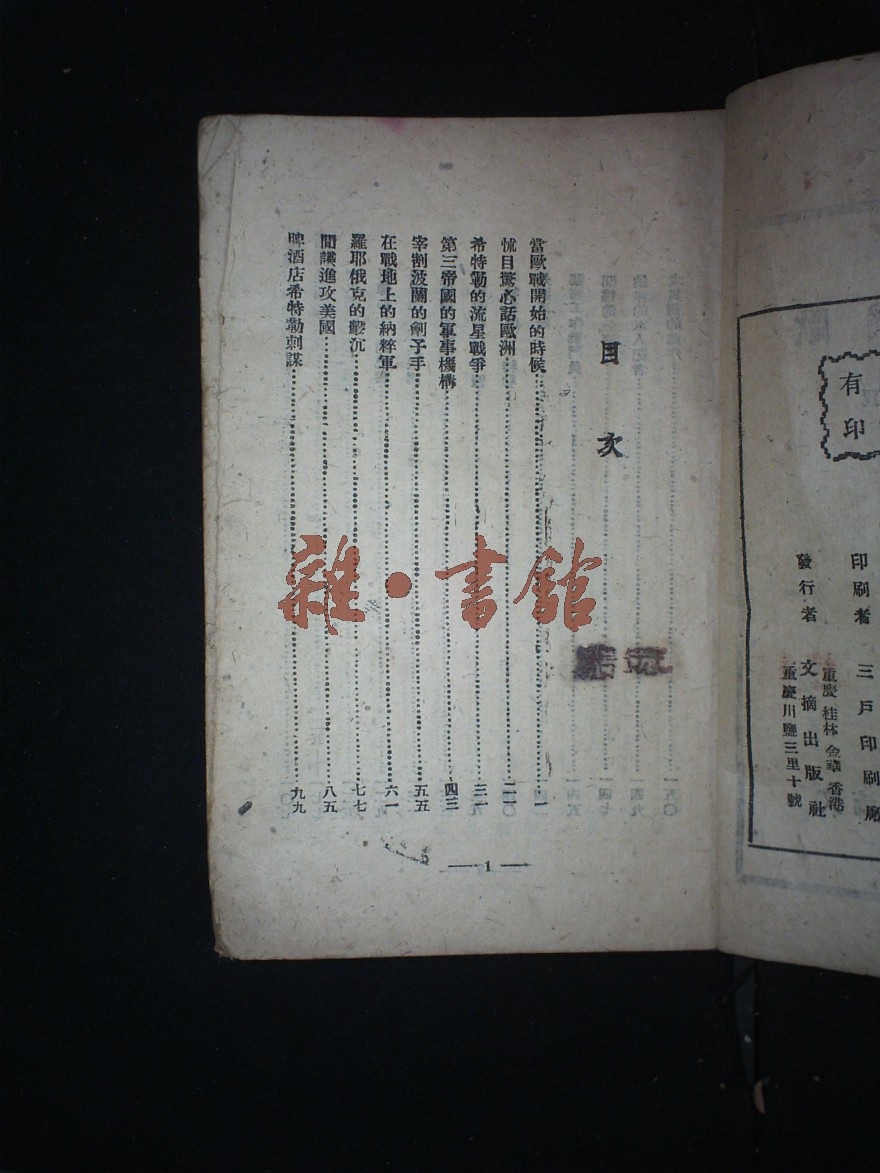 有
印
印刷者 三戶印刷廠
重慶 桂林 金華 香港
發行者 文摘出版社
重慶川鹽三里十號
目次
當歐戰開始的時候……一
怵目驚心話歐洲……二一〇
希特勒的流星戰爭……三一
第三帝國的軍事機構……四三
宰割波蘭的劊子手……五五
在戰地上的納粹軍……六一
羅耶俄克的擊沉……七七
間諜進攻美國……八五
啤酒店希特勒刺謀……九九
1
雜·書館